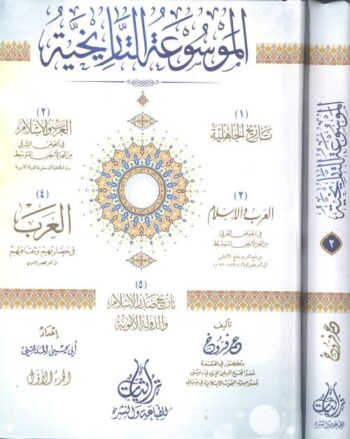 الموسوعة التاريخية
(١)
تاريخ الجاهلية
(٢)
العرب والإسلام
في الحوض الشرقي
من البحر الأبيض المتوسط
(٣)
العرب والإسلام
في الحوض الغربي
من البحر الأبيض المتوسط
(٤)
العرب
في حضارتهم وثقافتهم
إلى آخر العصر الأموي
(٥)
تاريخ صدر الإسلام
والدولة الأموية
تأليف
عمر فروخ
دكتور في الفلسفة
إعداد
الجزء الأول
للطباعة والنشر
الموسوعة التاريخية
٢
عمر فروخ